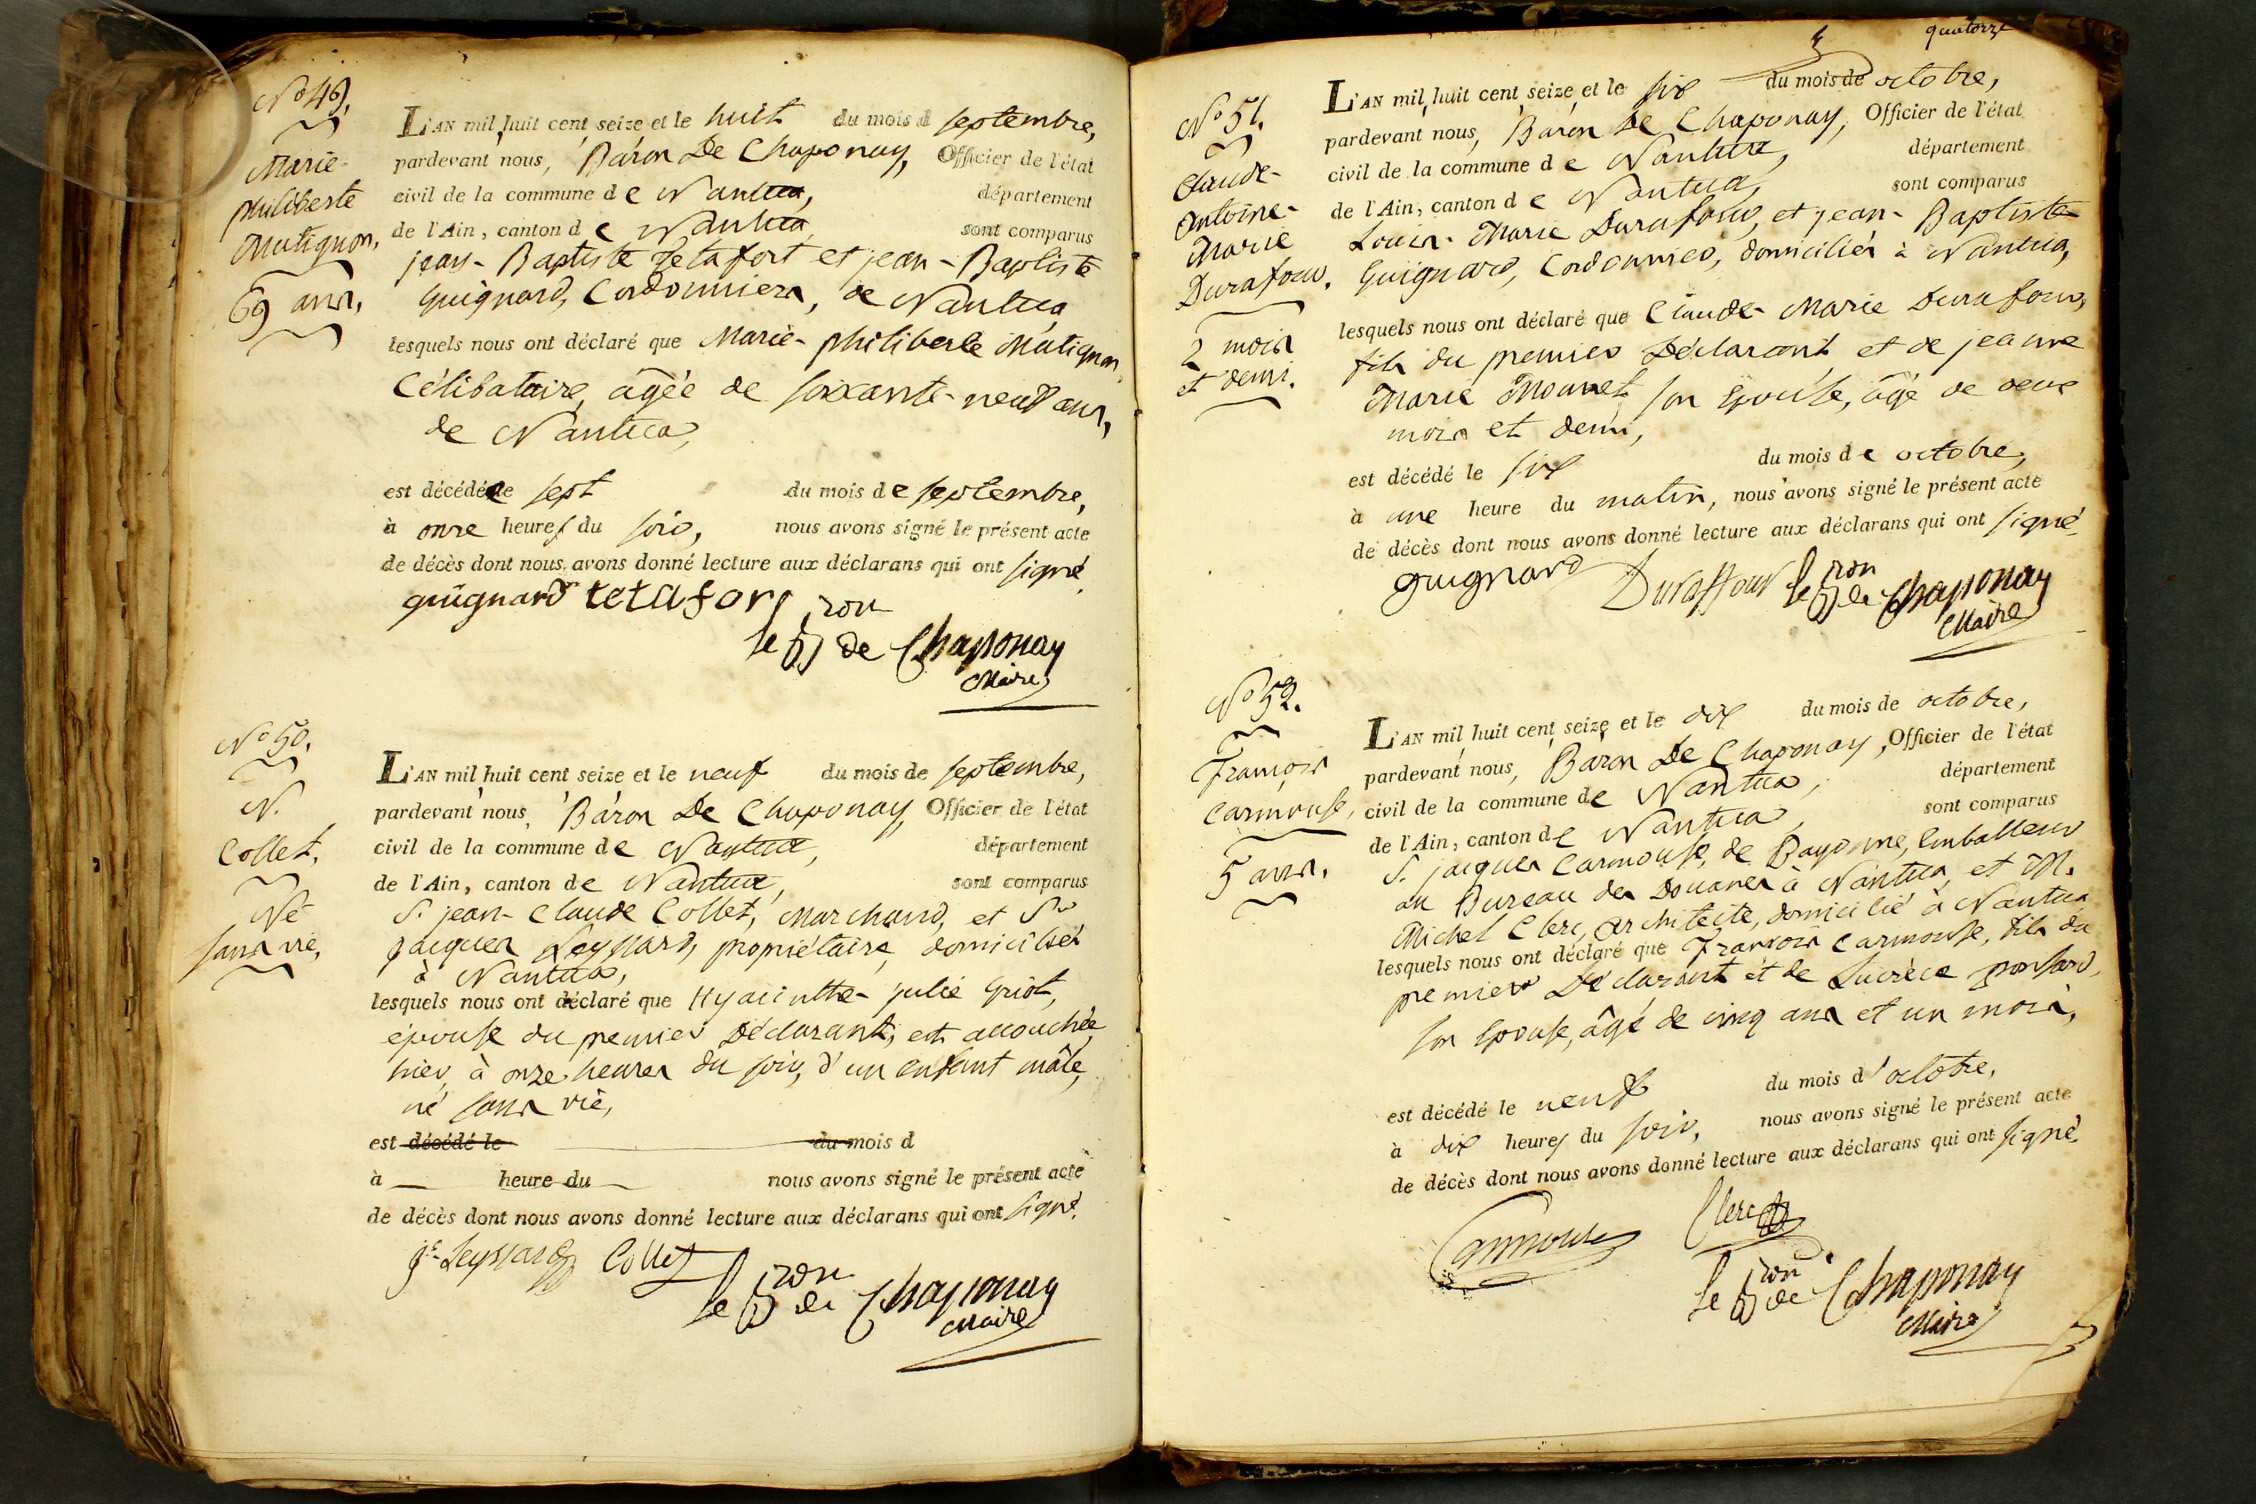 No 49.
Marie-
philiberte
Matignon,
69 ans.
L'AN mil huit cent seize et le huit du mois d septembre,
pardevant nous, Baron De Chaponay, Officier de l'état
civil de la commune de Nantua, département
de l'Ain, canton de Nantua, sont comparus
jean-Baptiste Tetafort et jean-Baptiste
Guignard, Cordonniers, de Nantua,
lesquels nous ont déclaré que Marie-philiberte Matignon,
Célibataire, âgée de soixante-neuf ans,
de Nantua,
est décédée le sept du mois de septembre,
à onze heures du soir, nous avons signé le présent acte
de décès dont nous avons donné lecture aux déclarans qui ont signé.
guignard tetafor
le Bron de Chaponay
Maire
No 50.
N.
Collet,
Né
sans vie,
L'AN mil huit cent seize et le neuf du mois de septembre,
pardevant nous, Baron De Chaponay, Officier de l'état
civil de la commune de Nantua, département
de l'Ain, canton de Nantua, sont comparus
Sr jean-Claude Collet, Marchand, et Sr
Jacques Leyssard, propriétaire, domiciliés
à Nantua,
lesquels nous ont déclaré que Hyacinthe-julie Griot,
épouse du premier Déclarant, est accouchée,
hier, à onze heures du soir, d'un enfant mâle,
né sans vie,
est décédé le du mois d
à heure du nous avons signé le présent acte
de décès dont nous avons donné lecture aux déclarans qui ont signé.
Leyssard Collet
le Bron de Chaponay
Maire
quatorze
No 51.
Claude-
Antoine-
Marie
Durafour.
2 mois
et demi.
L'AN mil huit cent seize et le six du mois de octobre,
pardevant nous, Baron De Chaponay, Officier de l'état
civil de la commune de Nantua, département
de l'Ain, canton de Nantua, sont comparus
Louis-Marie Durafour, et jean-Baptiste
Guignard, Cordonnier, domiciliés à Nantua,
lesquels nous ont déclaré que Claude-Marie Durafour,
fils du premier Déclarant et de jeanne
Marie Monnet son Epouse, âgé de deux
mois et demi,
est décédé le six du mois de octobre,
à une heure du matin, nous avons signé le présent acte
de décès dont nous avons donné lecture aux déclarans qui ont signé.
guignard Duraffour le Bron de Chaponay
Maire
No 52.
François
Carmouse,
5 ans.
L'AN mil huit cent seize et le dix du mois de octobre,
pardevant nous, Baron De Chaponay, Officier de l'état
civil de la commune de Nantua, département
de l'Ain, canton de Nantua, sont comparus
S. jacques Carmouse, de Bayonne, Emballeur
au Bureau des Douanes à Nantua, et M.
Michel Clerc, Architecte, domicilié à Nantua
lesquels nous ont déclaré que François Carmouse, fils du
premier Déclarant et de Lucrèce ponsard,
son Epouse, âgé de cinq ans et un mois,
est décédé le neuf du mois d'octobre,
à dix heures du soir, nous avons signé le présent acte
de décès dont nous avons donné lecture aux déclarans qui ont signé.
Carmouse Clerc
le Bron de Chaponay
Maire